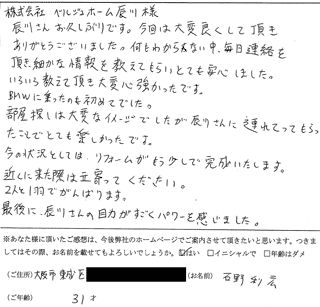 株式会社 ベルジュホーム辰川様
辰川さんお久しぶりです。今回は大変良くして頂き
ありがとうございました。何もわからない中、毎日連絡を
頂き細かな情報を教えてもらいとても安心しました。
いろいろ教えて頂き大変心強かったです。
BMWに乗ったのも初めてでした。
部屋探しは大変なイメージでしたが辰川さんに連れてってもらっ
たことでとても楽しかったです。
今の状況としては、リフォームがもう少しで完成いたします。
近くに来た際は立寄ってください。
2人と1羽でがんばります。
最後に、辰川さんの目力がすごくパワーを感じました。
※あなた様に頂いたご感想は、今後弊社のホームページでご案内させて頂きたいと思います。つきま
してはその際、お名前を載せてもよろしいでしょうか。 はい □イニシャルで □年齢はダメ
(ご住所) 大阪市 東成区 (お名前) 石野
(ご年齢) 31才